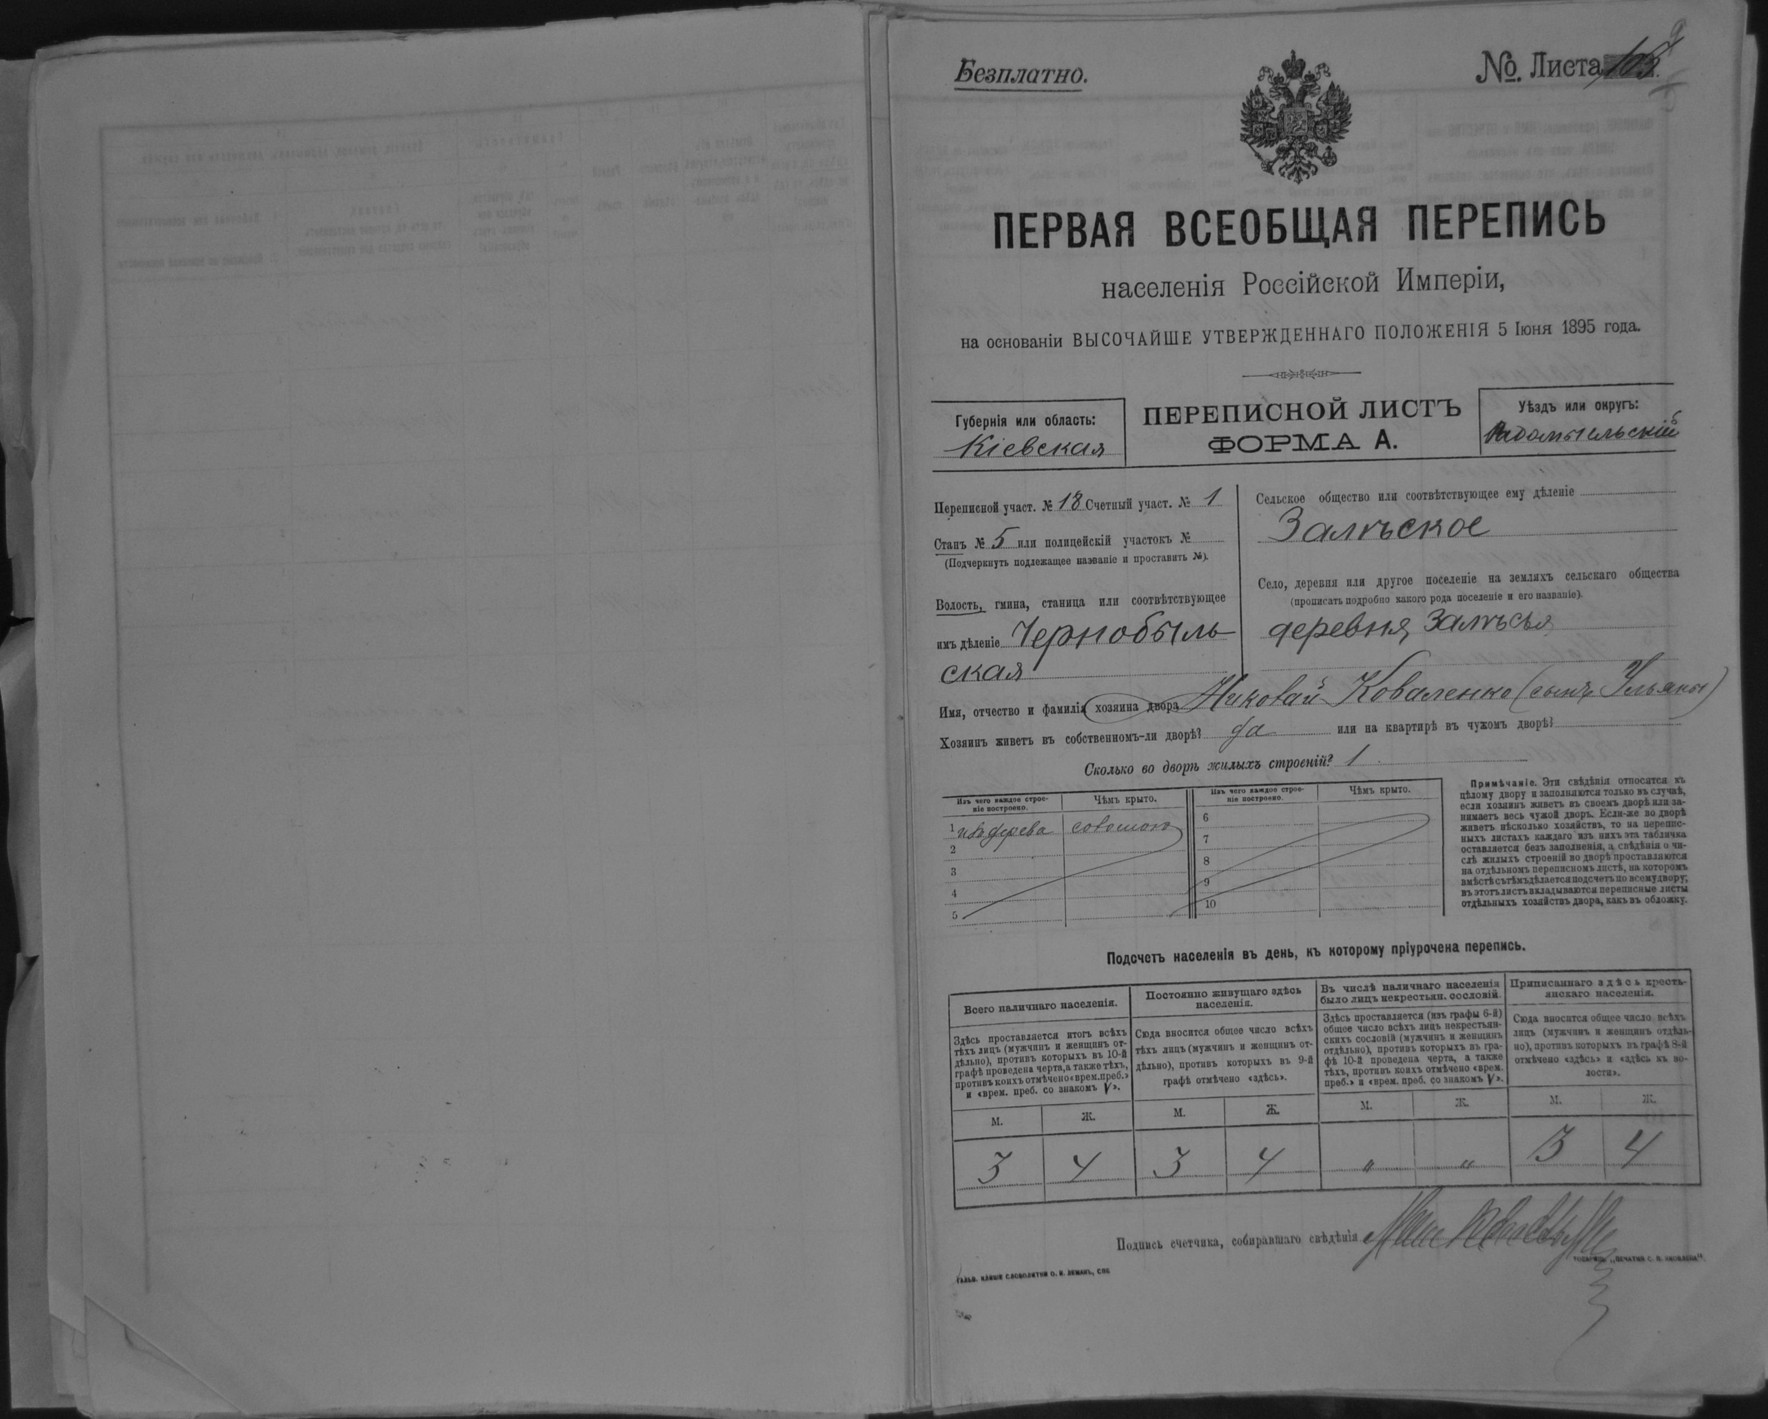 Безплатно.
№ Листа
ПЕРВАЯ ВСЕОБЩАЯ ПЕРЕПИСЬ
населенія Россійской Имперіи,
на основаніи ВЫСОЧАЙШЕ УТВЕРЖДЕННАГО ПОЛОЖЕНІЯ 5 Іюня 1895 года.
Губернія или область:
Кіевская
ПЕРЕПИСНОЙ ЛИСТЪ
ФОРМА А.
Уѣздъ или округъ:
Радомысльскій
Переписной участ. № 18 Счетный участ. № 1
Станъ № 5 или полицейскій участокъ №
(Подчеркнуть подлежащее названіе и проставить №).
Волость, гмина, станица или соотвѣтствующее
имъ дѣленіе Чернобыль-
ская
Сельское общество или соотвѣтствующее ему дѣленіе
Залѣское
Село, деревня или другое поселеніе на земляхъ сельскаго общества
(прописать подробно какого рода поселеніе и его названіе).
деревня Залѣсья
Имя, отчество и фамилія хозяина двора Николай Коваленко (сынъ Ульяны)
Хозяинъ живетъ въ собственномъ-ли дворѣ? да или на квартирѣ въ чужомъ дворѣ?
Сколько во дворѣ жилыхъ строеній? 1
Изъ чего каждое строе-
ніе построено.
Чѣмъ крыто.
1 изъ дерева соломою
2
3
4
5
Изъ чего каждое строе-
ніе построено.
Чѣмъ крыто.
6
7
8
9
10
Примѣчаніе. Эти свѣдѣнія относятся къ
цѣлому двору и заполняются только въ случаѣ,
если хозяинъ живетъ въ своемъ дворѣ или за-
нимаетъ весь чужой дворъ. Если-же во дворѣ
живетъ нѣсколько хозяйствъ, то на перепис-
ныхъ листахъ каждаго изъ нихъ эта табличка
оставляется безъ заполненія, а свѣдѣнія о чи-
слѣ жилыхъ строеній во дворѣ проставляются
на отдѣльномъ переписномъ листѣ, на которомъ
вмѣстѣ съ тѣмъ дѣлается подсчетъ по всему двору;
въ этотъ листъ вкладываются переписные листы
отдѣльныхъ хозяйствъ двора, какъ въ обложку.
Подсчетъ населенія въ день, къ которому пріурочена перепись.
Всего наличнаго населенія.
Здѣсь проставляется итогъ всѣхъ
тѣхъ лицъ (мужчинъ и женщинъ от-
дѣльно), противъ которыхъ въ 10-й
графѣ проведена черта, а также тѣхъ,
противъ коихъ отмѣчено «врем. преб.»
и «врем. преб. со знакомъ V».
Постоянно живущаго здѣсь
населенія.
Сюда вносится общее число всѣхъ
тѣхъ лицъ (мужчинъ и женщинъ от-
дѣльно), противъ которыхъ въ 9-й
графѣ отмѣчено «здѣсь».
Въ числѣ наличнаго населенія
было лицъ некрестьян. сословій.
Здѣсь проставляется (изъ графы 6-й)
общее число всѣхъ лицъ некрестьян-
скихъ сословій (мужчинъ и женщинъ
отдѣльно), противъ которыхъ въ гра-
фѣ 10-й проведена черта, а также
тѣхъ, противъ коихъ отмѣчено «врем.
преб.» и «врем. преб. со знакомъ V».
Приписаннаго здѣсь кресть-
янскаго населенія.
Сюда вносится общее число всѣхъ
лицъ (мужчинъ и женщинъ отдѣль-
но), противъ которыхъ въ графѣ 8-й
отмѣчено «здѣсь» и «здѣсь въ во-
лости».
М. Ж. М. Ж. М. Ж. М. Ж.
3 4 3 4 " " 3 4
Подпись счетчика, собиравшаго свѣдѣнія